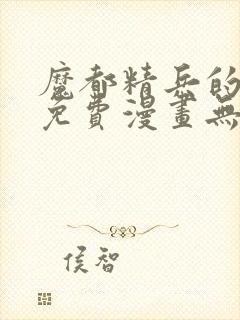 魔都精兵的
免費漫畫無
侯智